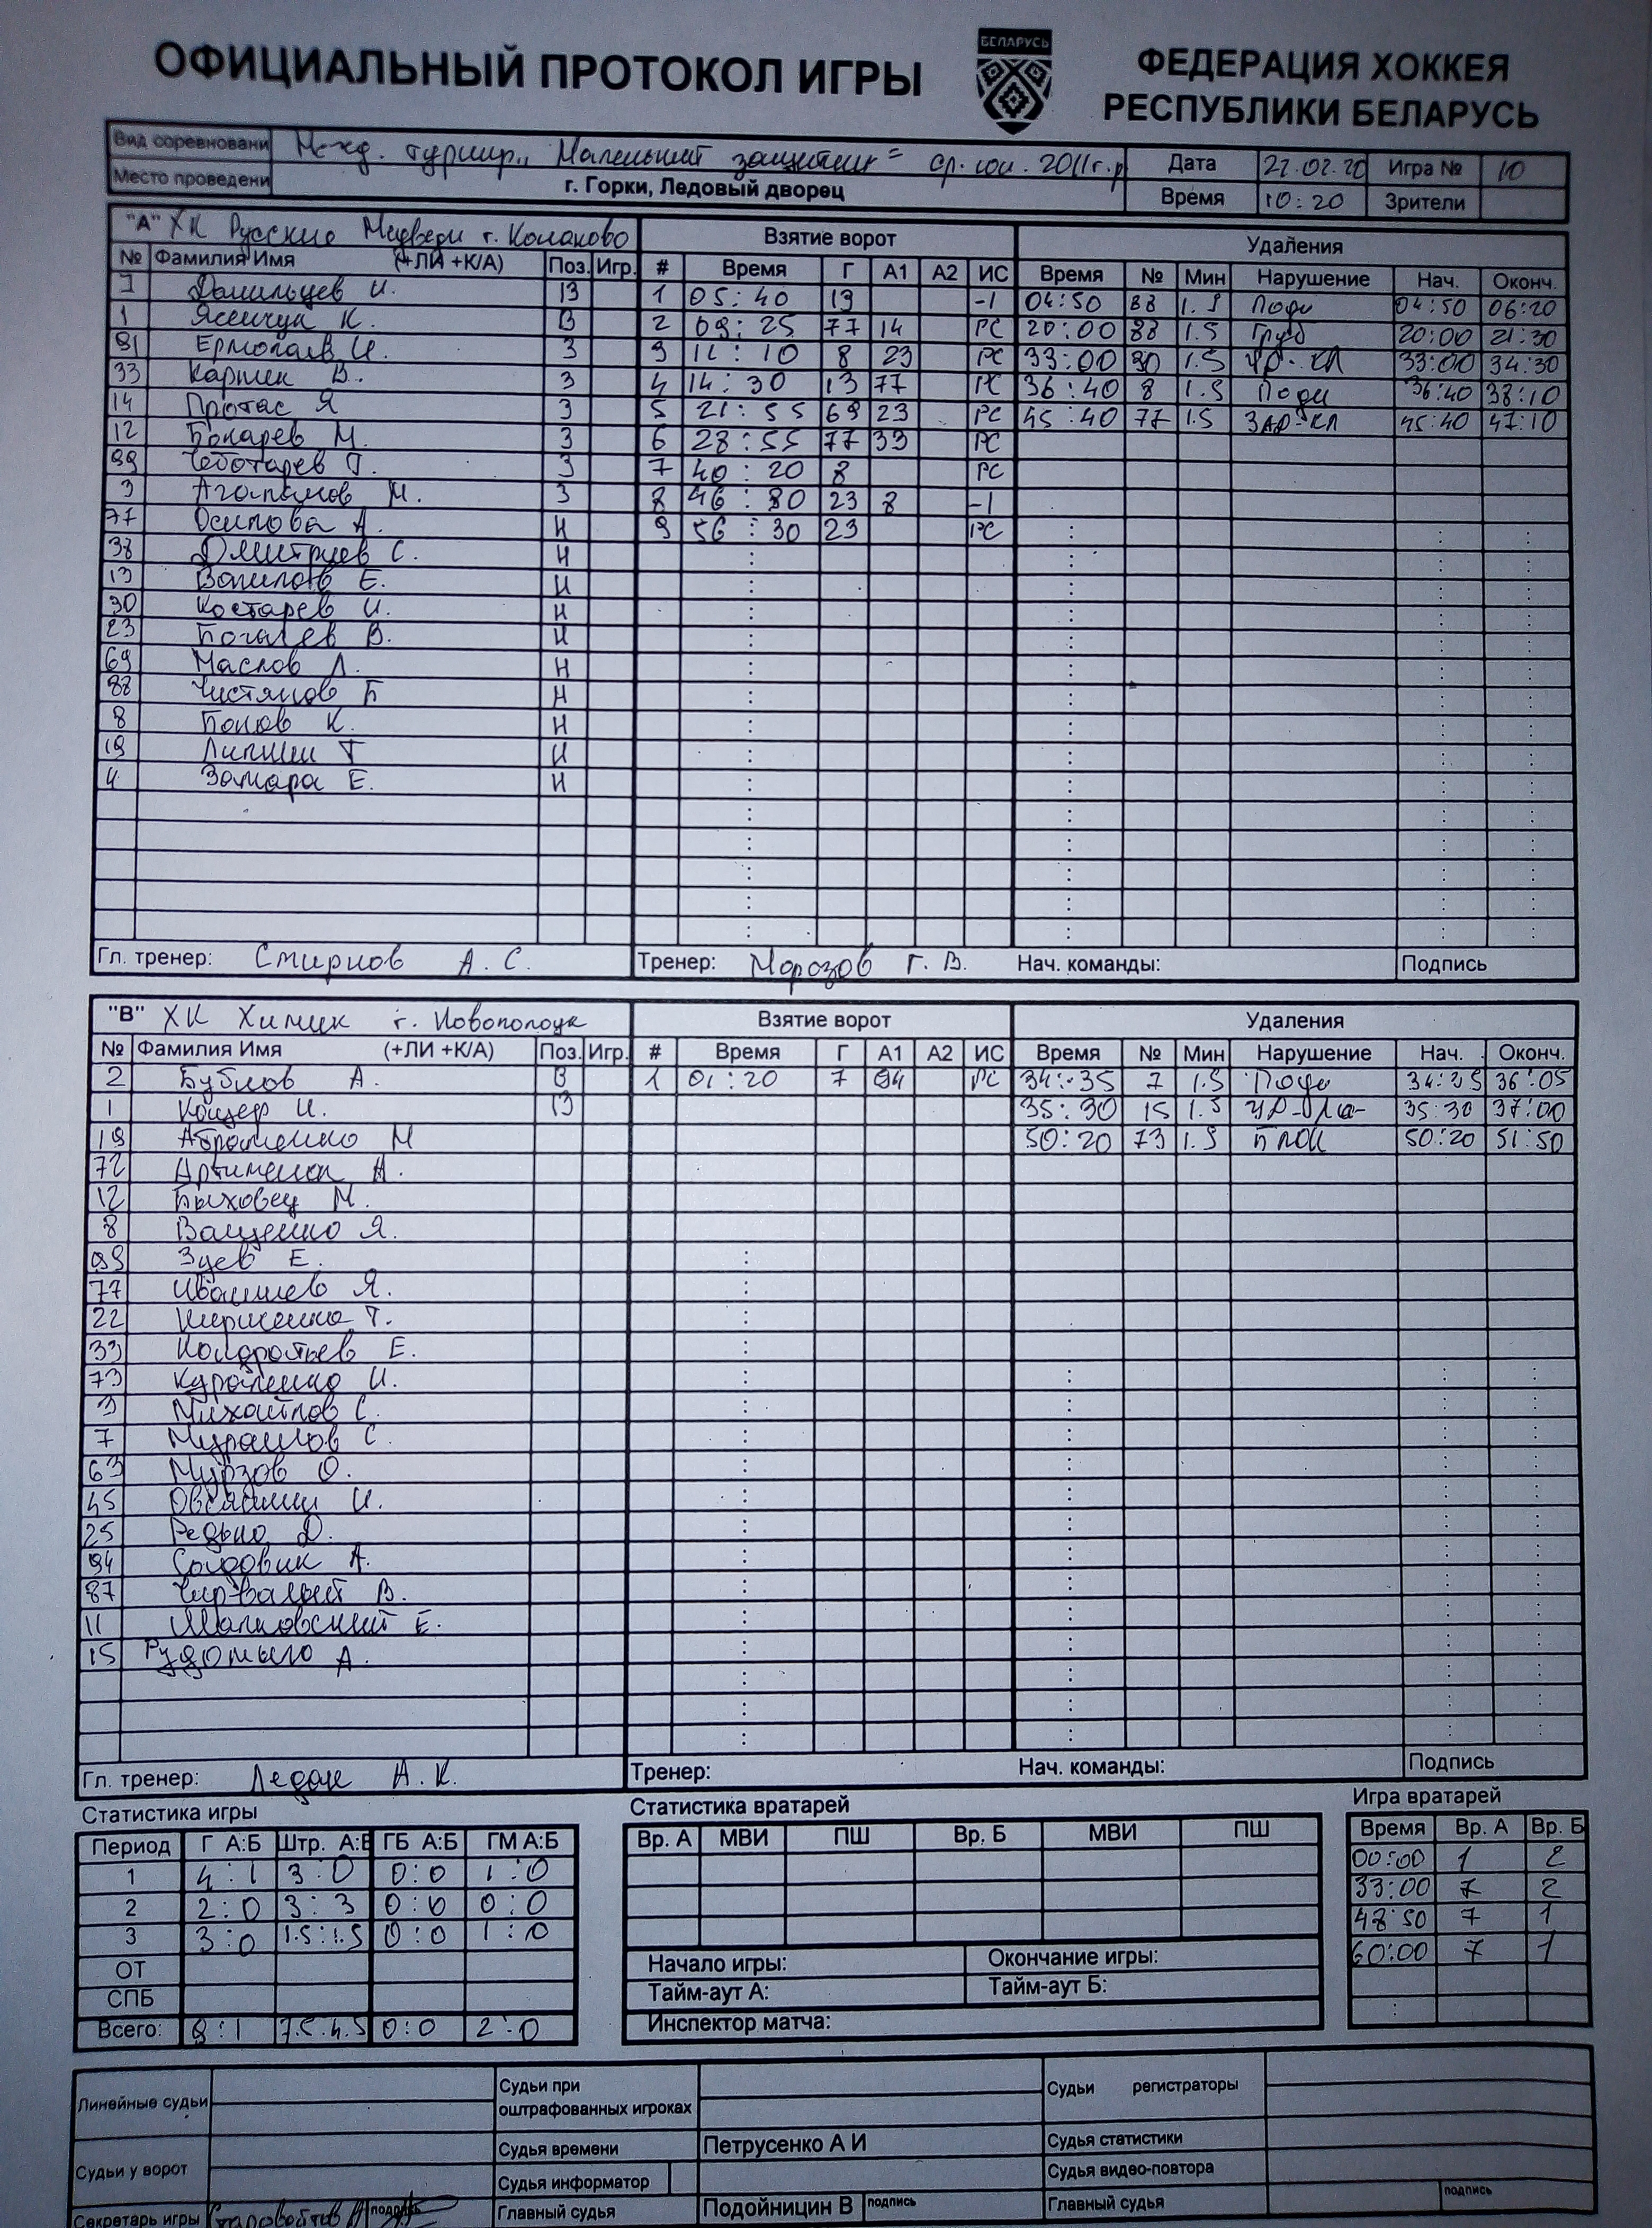 ОФИЦИАЛЬНЫЙ ПРОТОКОЛ ИГРЫ
БЕЛАРУСЬ
ФЕДЕРАЦИЯ ХОККЕЯ
РЕСПУБЛИКИ БЕЛАРУСЬ
Вид соревновани Межд. турнир „Маленький защитник" ср. юн. 2011г.р Дата 22.02.20 Игра № 10
Место проведени г. Горки, Ледовый дворец Время 10:20 Зрители
"А" ХК Русские Медведи г. Конаково Взятие ворот Удаления
№ Фамилия Имя (+ЛИ +К/А) Поз. Игр. # Время Г А1 А2 ИС Время № Мин Нарушение Нач. Оконч.
И. 1 05:40 13 -1 04:50 88 1.5 04:50 06:20
1 Ясинчук К. В 2 09:25 77 14 РС 20:00 88 1.5 Груб 20:00 21:30
Ермолаев И. З 3 11:10 8 23 РС 33:00 30 1.5 33:00 34:30
33 Карпек В. З 4 14:30 13 77 РС 36:40 8 1.5 36:40 38:10
14 Протас Я З 5 21:55 69 23 РС 45:40 77 1.5 ЗАД-КЛ 45:40 47:10
12 Бокарев М. З 6 28:55 77 33 РС
99 Чеботарев Г. З 7 40:20 8 РС
3 М. З 8 23 8 -1
77 Осипова А. Н 9 56:30 23 РС
38 Дмитриев С. Н
13 Вавилов Е. Н
30 Костарев И. Н
23 В. Н
69 Маслов Л. Н
88 Чистяков Б Н
8 Попов К. Н
19 Липкин Т Н
4 Замара Е. Н
Гл. тренер: Смирнов А. С. Тренер: Морозов Г. В. Нач. команды: Подпись
"В" ХК Химик г. Новополоцк Взятие ворот Удаления
№ Фамилия Имя (+ЛИ +К/А) Поз. Игр. # Время Г А1 А2 ИС Время № Мин Нарушение Нач. Оконч.
2 Бубнов А. В 1 01:20 7 94 РС 34:35 7 1.5 36:05
1 Кощер И. 35:30 15 1.5 35:30 37:00
19 Абраменко М 50:20 73 1.5 БЛОК 50:20 51:50
72 А.
12 Быховец М.
8 Ващенко Я.
99 Зуев Е.
77 Ивашнев Я.
22 Т.
33 Кондратьев Е.
73 И.
3 Михайлов С.
7 Мурашов С.
63 Мурзов О.
45 И.
25 Редько Д.
94 Солодовик А.
87 В.
11 Шапковский Е.
15 Рудомыло А.
Гл. тренер: Ледак А. К. Тренер: Нач. команды: Подпись
Статистика игры Статистика вратарей Игра вратарей
Период Г А:Б Штр. А:Б ГБ А:Б ГМ А:Б Вр. А МВИ ПШ Вр. Б МВИ ПШ Время Вр. А Вр. Б
1 4:1 3:0 0:0 1:0 00:00 1 2
2 2:0 3:3 0:0 0:0 33:00 7 2
3 3:0 1.5:1.5 0:0 1:0 48:50 7 1
ОТ Начало игры: Окончание игры: 60:00 7 1
СПБ Тайм-аут А: Тайм-аут Б:
Всего: 9:1 7.5:4.5 0:0 2:0 Инспектор матча:
Линейные судьи Судьи при оштрафованных игроках Судьи регистраторы
Судья времени Петрусенко А И Судья статистики
Судьи у ворот Судья информатор Судья видео-повтора
Секретарь игры Старовойтов подпись Главный судья Подойницин В подпись Главный судья подпись